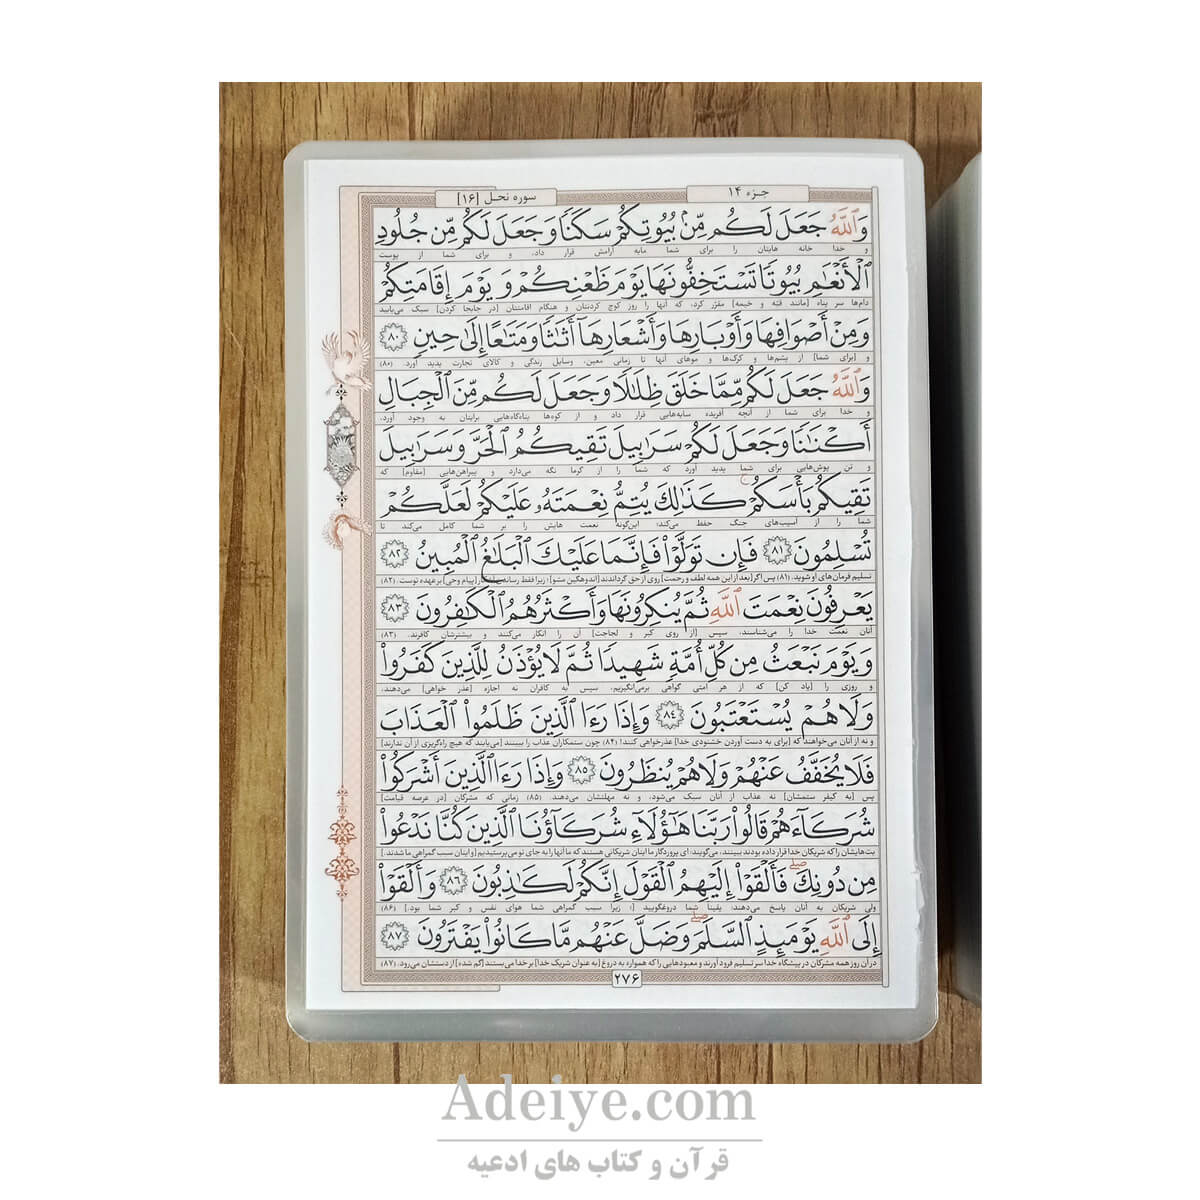 جزء ۱۴
سوره نحل [۱۶]
وَاللَّهُ جَعَلَ لَكُم مِّنۢ بُيُوتِكُمْ سَكَنًا وَجَعَلَ لَكُم مِّن جُلُودِ
و خدا خانه هایتان را برای شما مایه آرامش قرار داد، و برای شما از پوست
الْأَنْعَـٰمِ بُيُوتًا تَسْتَخِفُّونَهَا يَوْمَ ظَعْنِكُمْ وَيَوْمَ إِقَامَتِكُمْ
دام‌ها سر پناه [مانند قبّه و خیمه] مقرّر کرد، که آنها را روز کوچ کردنتان و هنگام اقامتتان [در جابجا کردن] سبک می‌یابید
وَمِنْ أَصْوَافِهَا وَأَوْبَارِهَا وَأَشْعَارِهَآ أَثَـٰثًا وَمَتَـٰعًا إِلَىٰ حِينٍ ۸۰
و [برای شما] از پشم‌ها و کرک‌ها و موهای آنها تا زمانی معین، وسایل زندگی و کالای تجارت پدید آورد. (۸۰)
وَاللَّهُ جَعَلَ لَكُم مِّمَّا خَلَقَ ظِلَـٰلًا وَجَعَلَ لَكُم مِّنَ الْجِبَالِ
و خدا برای شما از آنچه آفریده سایه‌هایی قرار داد و از کوه‌ها پناه‌گاه‌هایی برایتان به وجود آورد،
أَكْنَـٰنًا وَجَعَلَ لَكُمْ سَرَٰبِيلَ تَقِيكُمُ الْحَرَّ وَسَرَٰبِيلَ
و تن پوش‌هایی برای شما پدید آورد که شما را از گرما نگه می‌دارد و پیراهن‌هایی [مقاوم] که
تَقِيكُم بَأْسَكُمْ ۚ كَذَٰلِكَ يُتِمُّ نِعْمَتَهُۥ عَلَيْكُمْ لَعَلَّكُمْ
شما را از آسیب‌های جنگ حفظ می‌کند؛ این‌گونه نعمت هایش را بر شما کامل می‌کند تا
تُسْلِمُونَ ۸۱ فَإِن تَوَلَّوْا فَإِنَّمَا عَلَيْكَ الْبَلَـٰغُ الْمُبِينُ ۸۲
تسلیم فرمان‌های او شوید. (۸۱) پس اگر [بعد از این همه لطف و رحمت] روی از حق گرداندند [اندوهگین مشو]؛ زیرا فقط رساندن آشکار [پیام وحی] بر عهده توست. (۸۲)
يَعْرِفُونَ نِعْمَتَ اللَّهِ ثُمَّ يُنكِرُونَهَا وَأَكْثَرُهُمُ الْكَـٰفِرُونَ ۸۳
آنان نعمت خدا را می‌شناسند، سپس [از روی کبر و لجاجت] آن را انکار می‌کنند و بیشترشان کافرند. (۸۳)
وَيَوْمَ نَبْعَثُ مِن كُلِّ أُمَّةٍ شَهِيدًا ثُمَّ لَا يُؤْذَنُ لِلَّذِينَ كَفَرُوا
و روزی را [یاد کن] که از هر امتی گواهی برمی‌انگیزیم، سپس به کافران نه اجازه [عذر خواهی] می‌دهند،
وَلَا هُمْ يُسْتَعْتَبُونَ ۸۴ وَإِذَا رَءَا الَّذِينَ ظَلَمُوا الْعَذَابَ
و نه از آنان می‌خواهند که [برای به دست آوردن خشنودی خدا] عذرخواهی کنند! (۸۴) چون ستمکاران عذاب را ببینند [می‌یابند که هیچ راه‌گریزی از آن ندارند]
فَلَا يُخَفَّفُ عَنْهُمْ وَلَا هُمْ يُنظَرُونَ ۸۵ وَإِذَا رَءَا الَّذِينَ أَشْرَكُوا
پس [به کیفر ستمشان] نه عذاب از آنان سبک می‌شود، و نه مهلتشان می‌دهند. (۸۵) زمانی که مشرکان [در عرصه قیامت]
شُرَكَآءَهُمْ قَالُوا رَبَّنَا هَـٰٓؤُلَآءِ شُرَكَآؤُنَا الَّذِينَ كُنَّا نَدْعُوا
بت‌هایشان را که شریکان خدا قرار داده بودند ببینند، می‌گویند: ای پروردگار ما اینان شریکانی هستند که ما آنها را به جای تو می‌پرستیدیم [و اینان سبب گمراهی ما شدند.]
مِن دُونِكَ ۖ فَأَلْقَوْا إِلَيْهِمُ الْقَوْلَ إِنَّكُمْ لَكَـٰذِبُونَ ۸۶ وَأَلْقَوْا
ولی شریکان به آنان پاسخ می‌دهند: یقیناً شما دروغگویید [؛ زیرا سبب گمراهی شما هوای نفس و کبر شما بود.] (۸۶)
إِلَى اللَّهِ يَوْمَئِذٍ السَّلَمَ ۖ وَضَلَّ عَنْهُم مَّا كَانُوا يَفْتَرُونَ ۸۷
در آن روز همه مشرکان در پیشگاه خدا سر تسلیم فرود آورند و معبودهایی را که همواره به دروغ [به عنوان شریک خدا] بر خدا می‌بستند [گم شده] از دستشان می‌رود. (۸۷)
۲۷۶
Adeiye.com
قرآن و کتاب های ادعیه